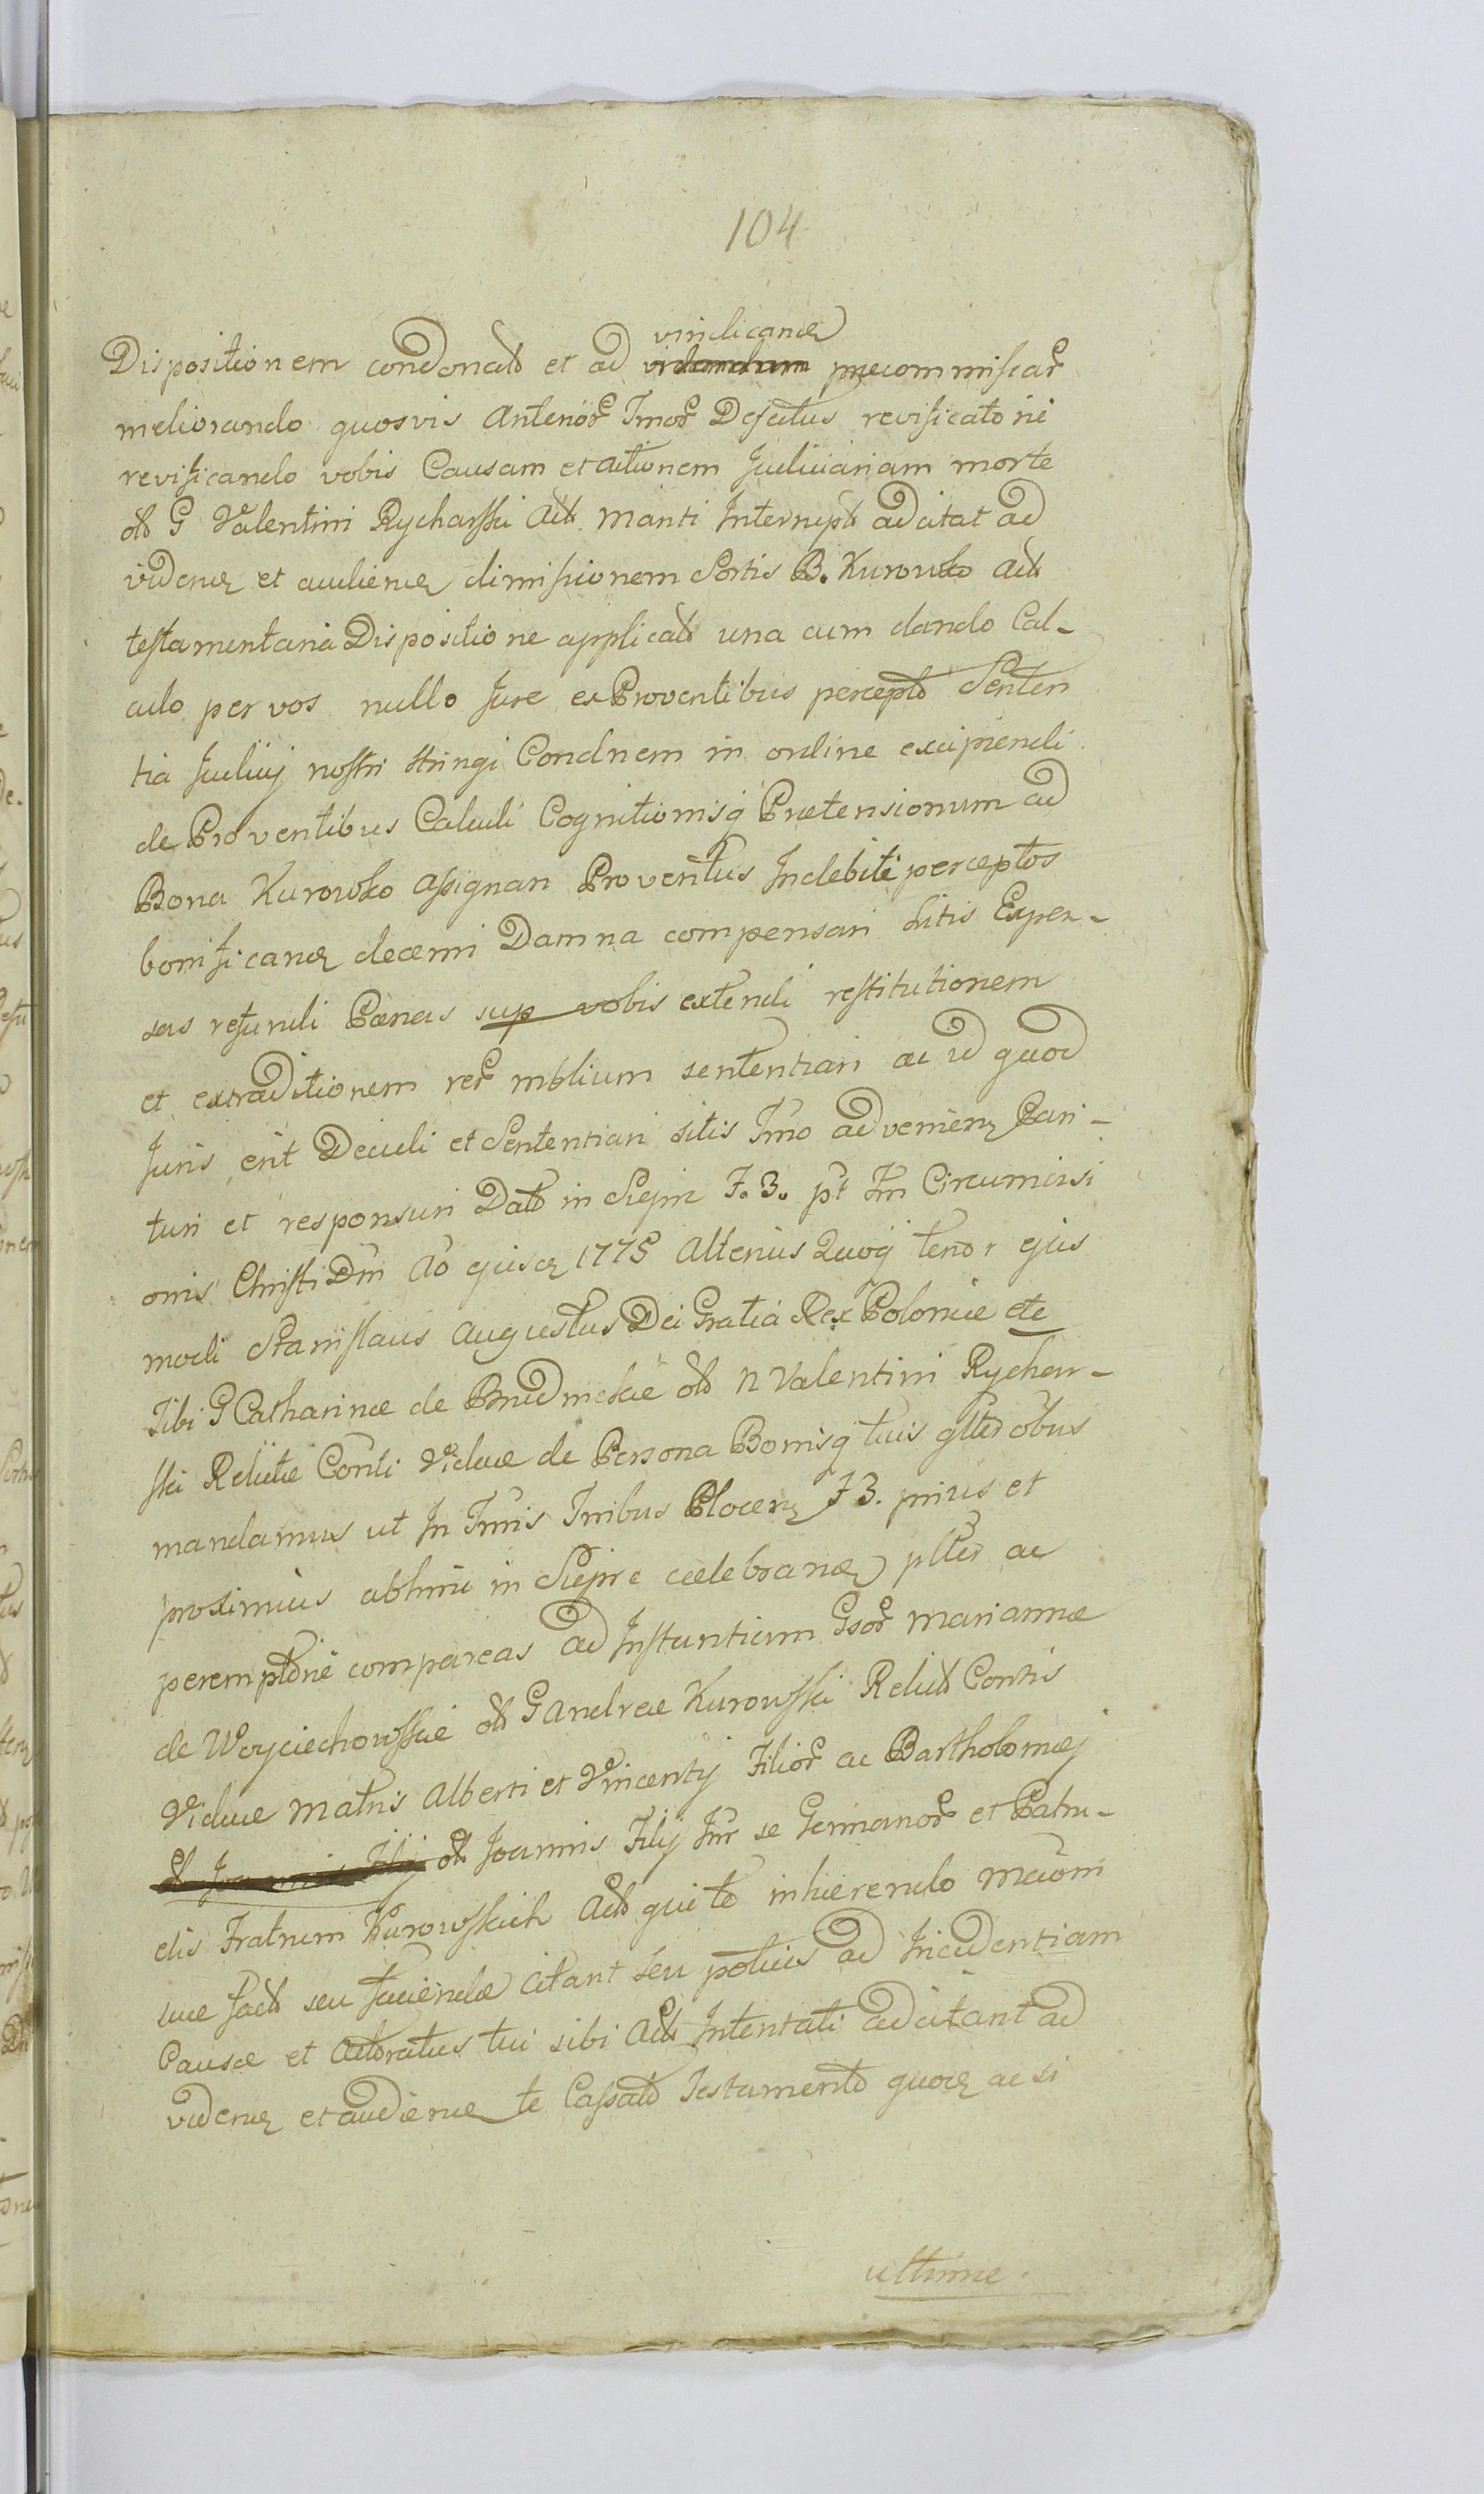 104
vindicand
Dispositionem condonato et ad videndum præcommissar
meliorando quosvis Anterior Tmor Defectus revificato ne
revificando vobis Causam et Actionem Judiciariam morte
olo G Valentini Rycharski Acto Mariti Interrupto adcitat ad
videnđ et audienđ dimissionem Sortis B. Kurowko Acto
testamentaria Dispositione applicato una cum dando Cal-
culo per vos nullo Jure ex Proventibus percepto Senten
tia Judicij nostri stringi Condnem in ordine excipiendi
de Proventibus Calculi Cognitionisq Prætensionum ad
Bona Kurowko assignari Proventus Indebite perceptos
bonificand decerni Damna compensari Litis Expen-
sas refundi Pœnas sup vobis extendi restitutionem
et extraditionem rer mblium sententiari ac id quod
Juris erit Decidi et Sententiari sitis Tmo advenien Pari-
turi et responsuri Dato in Sieprc F. 3. pt Fm Circumcisi
onis Christi Dni Ao ejusd 1775 Alterius Quoq tenor ejus
modi Stanislaus Augustus Dei Gratia Rex Poloniæ etc
Tibi G Catharinæ de Brudnickie olo N Valentini Rychar-
ski Relictæ Conti Viduæ de Persona Bonisq tuis gltr obus
mandamus ut In Tmis Tribus Plocen F 3. prius et
proximius abhinc in Sieprc celebrand pltr ac
peremptorie compareas ad Instantiam Gsor Mariannæ
de Woyciechowskie olo G Andreæ Kurowski Relicto Contis
Viduæ Matris Alberti et Vincentij Filior ac Bartholomæj
olo Joannis Filij olo Joannis Filij Intr se Germanor et Patru-
elis Fratrum Kurowskich Acto qui te inhærendo Mcioni
suæ facto seu faciendæ citant seu potius ad Incidentiam
Causæ et Actoratus tui sibi Acto Intentati adcitant ad
vidend et audiend te Cassato Testamento quod ac si
ultimæ